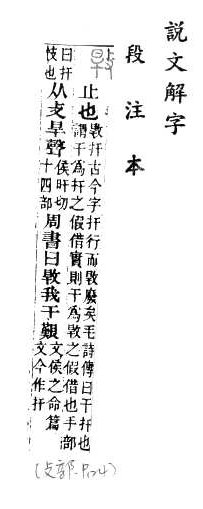 說文解字
段注本
止也
㪋扞古今字扞行而㪋廢矣毛詩傳曰干扞也
謂干爲扞之假借實則干爲㪋之假借也手部
曰扞
忮也
从攴旱聲
侯旰切
十四部
周書曰㪋我于艱
文侯之命篇
文今作扞
(攴部.P124)